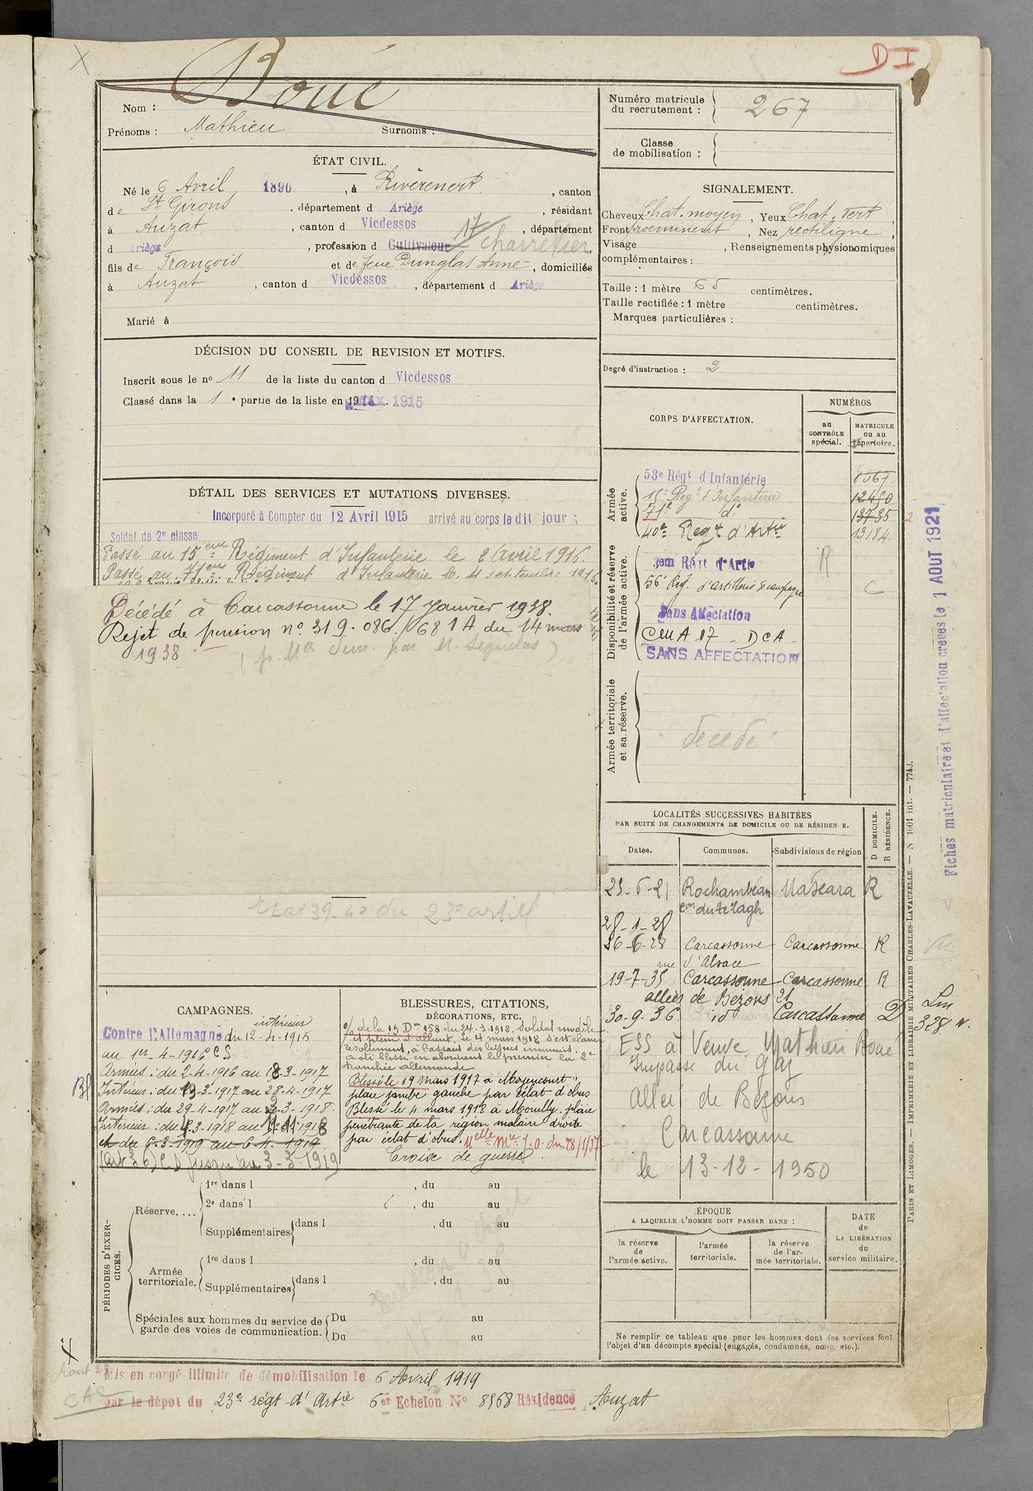 Boué
D I
Nom :
Prénoms : Mathieu Surnoms :
Numéro matricule du recrutement : 267
Classe de mobilisation :
ÉTAT CIVIL.
Né le 6 Avril 1896, à Rivèrenert, canton
de St Girons, département d Ariège, résidant
à Auzat, canton d Vicdessos, département
d Ariège, profession d Cultivateur 17 charretier
fils de François et de feue Dunglas Anne, domiciliés
à Auzat, canton d Vicdessos, département d Ariège
Marié à
SIGNALEMENT.
Cheveux Chat. moyen, Yeux Chat. vert,
Front proeminent, Nez rectiligne,
Visage , Renseignements physionomiques
complémentaires :
Taille : 1 mètre 65 centimètres.
Taille rectifiée : 1 mètre centimètres.
Marques particulières :
Degré d'instruction : 2
DÉCISION DU CONSEIL DE REVISION ET MOTIFS.
Inscrit sous le no 11 de la liste du canton d Vicdessos
Classé dans la 1e partie de la liste en 1915
DÉTAIL DES SERVICES ET MUTATIONS DIVERSES.
Incorporé à Compter du 12 Avril 1915 arrivé au corps le dit jour ;
Soldat de 2e classe
Passé au 15eme Régiment d'Infanterie le 2 Avril 1916.
Passé au 71eme Régiment d'Infanterie le 4 septembre 1916
Décédé à Carcassonne le 17 Janvier 1938.
Rejet de pension no 319.086/681A du 14 mars
1938
CORPS D'AFFECTATION.
NUMÉROS
AU CONTRÔLE spécial.
MATRICULE ou au répertoire.
Armée active.
53e Régt d'Infanterie 8567
15e Regt d'Infanterie 12490
71e do 13735
40e Regt d'Artie 13184
Disponibilité et réserve de l'armée active.
3em Rég d'Artie R
56e Rég. d'artillerie Campagne C
Sans Affectation
CMA 17 - DCA
SANS AFFECTATION
Armée territoriale et sa réserve.
décédé
LOCALITÉS SUCCESSIVES HABITÉES
PAR SUITE DE CHANGEMENTS DE DOMICILE OU DE RÉSIDENCE.
Dates. Communes. Subdivisions de région D DOMICILE. R RÉSIDENCE.
25-6-21 Rochambeau Mascara R
28-1-28
26-6-28 Carcassonne Carcassonne R
rue d'Alsace
19-7-35 Carcassonne Carcassonne R
allées de Bezons 21
30-9-36 id Carcassonne D
ESS à Veuve Mathieu Boué
Impasse du Gaz
Allée de Bezons
Carcassonne
le 13-12-1950
Fiches matriculaire et d'affectation créées le 1 AOUT 1921
PARIS ET LIMOGES. — IMPRIMERIE ET LIBRAIRIE MILITAIRES CHARLES-LAVAUZELLE.
CAMPAGNES.
Contre l'Allemagne intérieur du 12-4-1915
au 1er-4-1916
Armées : du 2-4-1916 au 18-3-1917
Intérieur : du 19-3-1917 au 28-4-1917
Armées : du 29-4-1917 au 3-3-1918
Intérieur : du 4.3-1918 au 4-11-1918
BLESSURES, CITATIONS, DÉCORATIONS, ETC.
Blessé le 19 mars 1917 à Moyencourt
plaie jambe gauche par éclat d'obus
Blessé le 4 mars 1918 à Mouilly, plaie
pénétrante de la région malaire droite
par éclat d'obus.
Croix de guerre
PÉRIODES D'EXERCICES.
Réserve....
1re dans l , du au
2e dans l , du au
Supplémentaires dans l , du au
Armée territoriale.
1re dans l , du au
Supplémentaires dans l , du au
Spéciales aux hommes du service de garde des voies de communication.
Du au
Du au
ÉPOQUE
A LAQUELLE L'HOMME DOIT PASSER DANS :
la réserve de l'armée active.
l'armée territoriale.
la réserve de l'armée territoriale.
DATE de LA LIBÉRATION du service militaire.
Ne remplir ce tableau que pour les hommes dont les services font
l'objet d'un décompte spécial (engagés, condamnés, omis, etc.).
Mis en congé illimité de démobilisation le 6 Avril 1919
par le dépot du 23e régt d'Artie 6er Echelon No 8568 Résidence Auzat